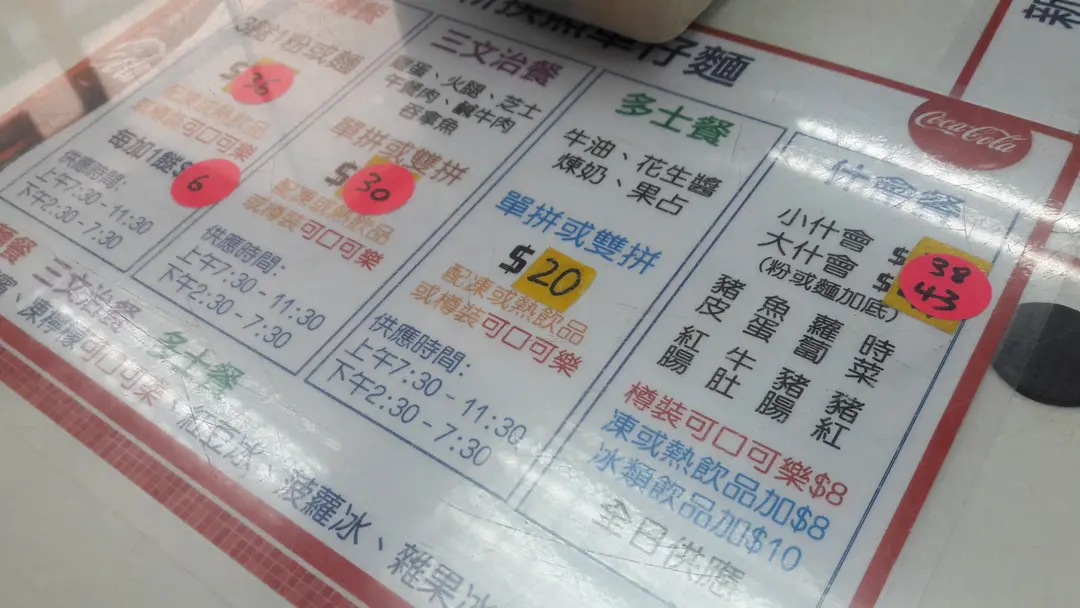 車仔麵
餐
3餸1粉或麵
$
配凍或熱飲品
或樽裝可口可樂
每加1餸$6
供應時間:
上午7:30 - 11:30
下午2:30 - 7:30
三文治餐
蛋、火腿、芝士
午餐肉、鹹牛肉
吞拿魚
單拼或雙拼
$30
配凍或熱飲品
或樽裝可口可樂
供應時間:
上午7:30 - 11:30
下午2:30 - 7:30
多士餐
牛油、花生醬
煉奶、果占
單拼或雙拼
$20
配凍或熱飲品
或樽裝可口可樂
供應時間:
上午7:30 - 11:30
下午2:30 - 7:30
Coca-Cola
什會餐
小什會 $38
大什會 $43
(粉或麵加底)
時菜 豬紅
蘿蔔 豬腸
魚蛋 牛肚
豬皮 紅腸
樽裝可口可樂$8
凍或熱飲品加$8
冰類飲品加$10
全日供應
餐 三文治餐 多士餐
凍檸檬可口可樂、紅豆冰、菠蘿冰、雜果冰
新